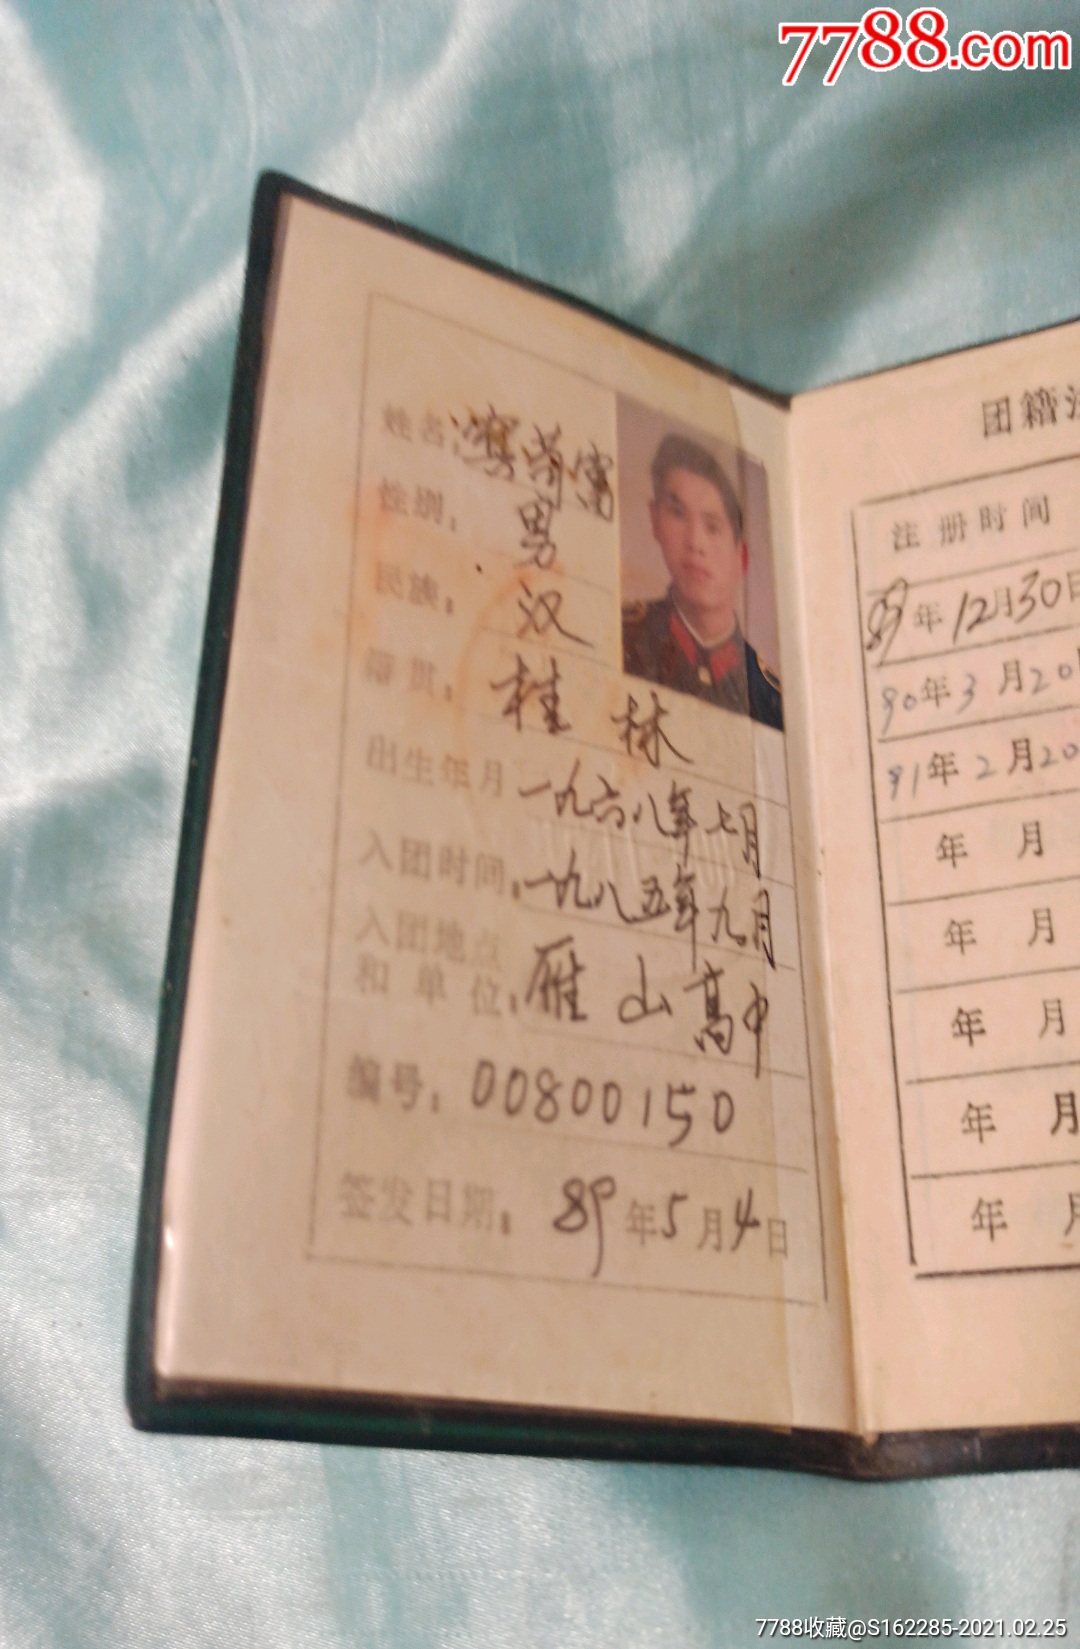 7788.com
姓名:
性别: 男
民族: 汉
籍贯: 桂林
出生年月 一九六八年七月
入团时间: 一九八五年九月
入团地点
和单位: 雁山高中
编号: 00800150
签发日期: 89年5月4日
团籍注
注册时间
89年12月30日
90年3月20
91年2月20
年 月
年 月
年 月
年 月
年 月
7788收藏@S162285-2021.02.25